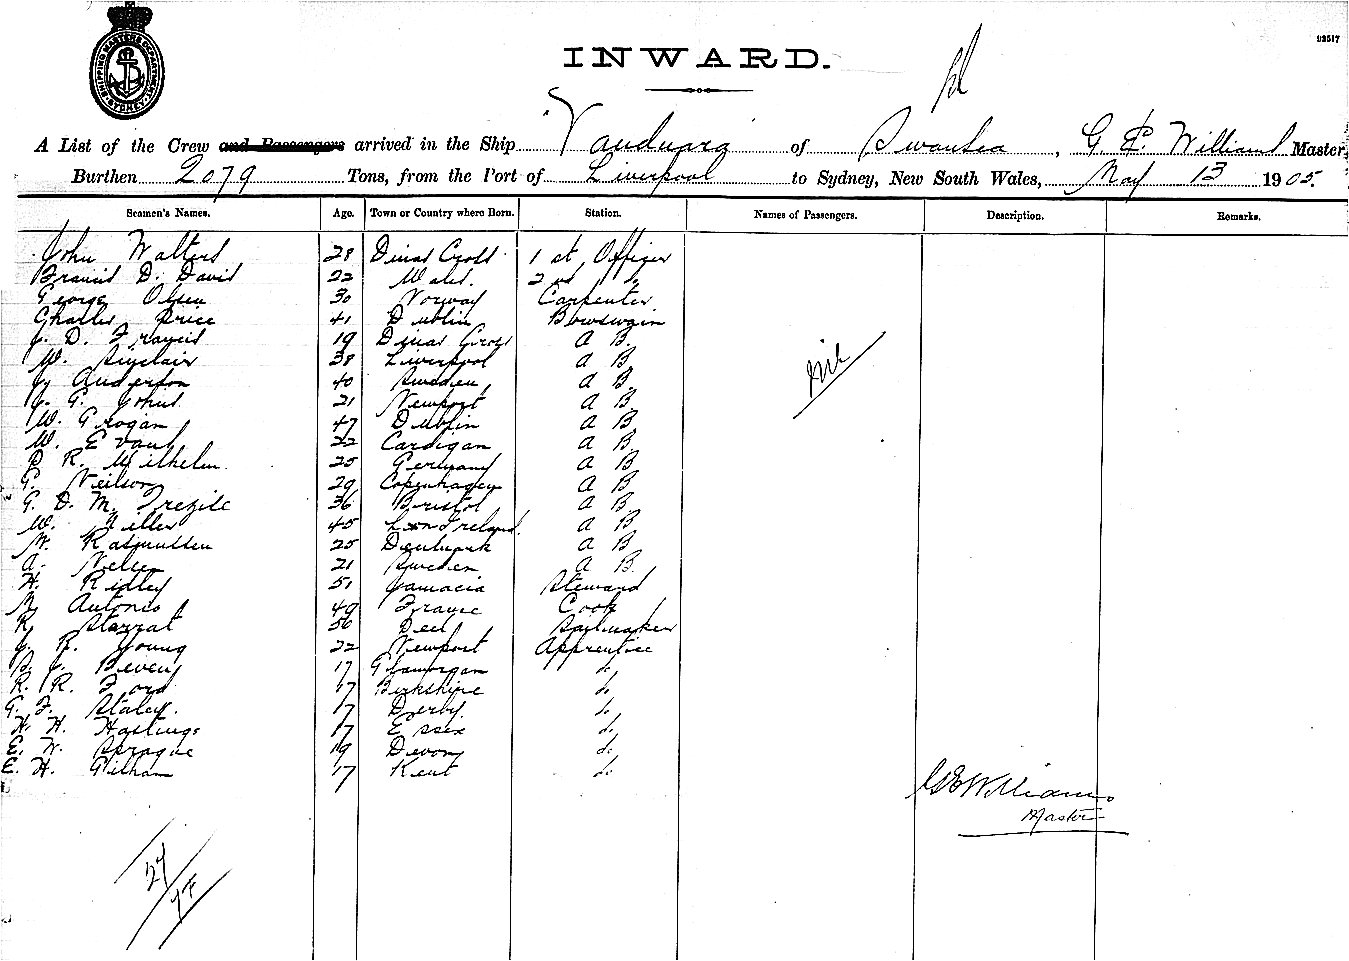 SHIPPING MASTERS DEPARTMENT SYDNEY
22517
INWARD.
A List of the Crew and Passengers arrived in the Ship "Vanduara" of Swansea, G. E. Williams Master,
Burthen 2079 Tons, from the Port of Liverpool to Sydney, New South Wales, May 13 1905.
Seamen's Names. Age. Town or Country where Born. Station. Names of Passengers. Description. Remarks.
John Walters 28 Dinas Cross 1st Officer
Francis D. David 22 Wales. 2nd do
George Olsen 30 Norway Carpenter
Charles Price 41 Dublin Bowswain
J. D. Francis 19 Dinas Cross A B.
W. Sinclair 38 Liverpool A B
J. Anderson 40 Sweden A B
J. G. Johns 21 Newport A B
W. Grogan 47 Dublin A B
W. Evans 22 Cardigan A B
P. R. Wilhelm 25 Germany A B
G. Neilson 29 Copenhagen A B
G. D. M. Trezise 36 Bristol A B
W. 45 Ireland. A B
W. Rasmussen 25 Denmark A B
A. Nelsen 21 Sweden A B.
H. Ridley 51 Jamacia Steward
Antonio 49 France Cook
R. Starrat 56 Deel Sailmaker
J. R. Young 22 Newport Apprentice
B. J. Beven 17 Glamorgan do
R. R. Ford 17 Birkshire do
G. F. Staley. 17 Derby do
H. H. Hastings 17 Essex do
E. W. Sprague 19 Devon do
E. H. Gilham 17 Kent do
Nil
G E Williams
Master
27